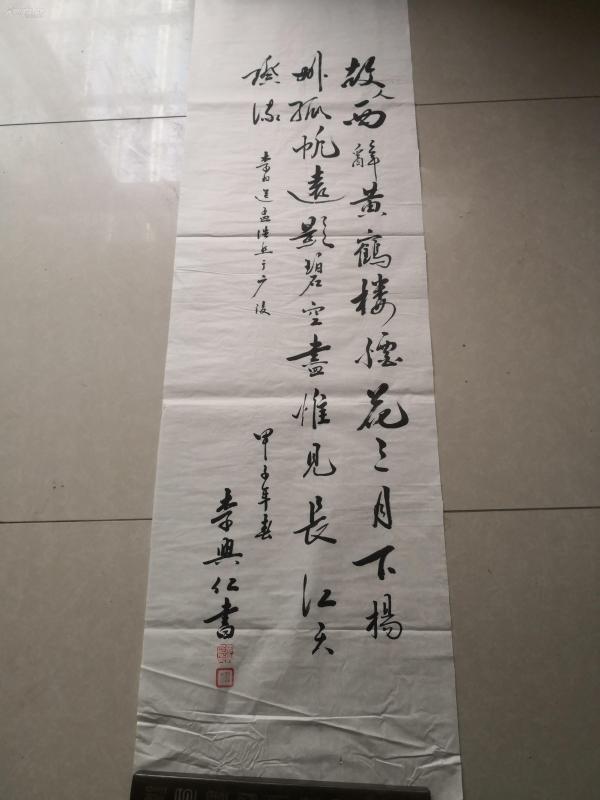 故人西辞黄鹤楼烟花三月下楊
州孤帆遠影碧空盡惟見長江天
際流
李白送孟浩然之广陵
甲子年春
李興仁書